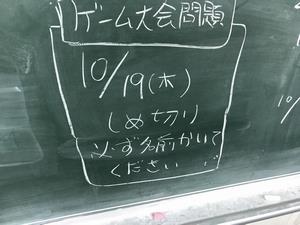 ゲーム大会問題
10/19(木)
(〆切り)
必ず名前かいて
ください
10/